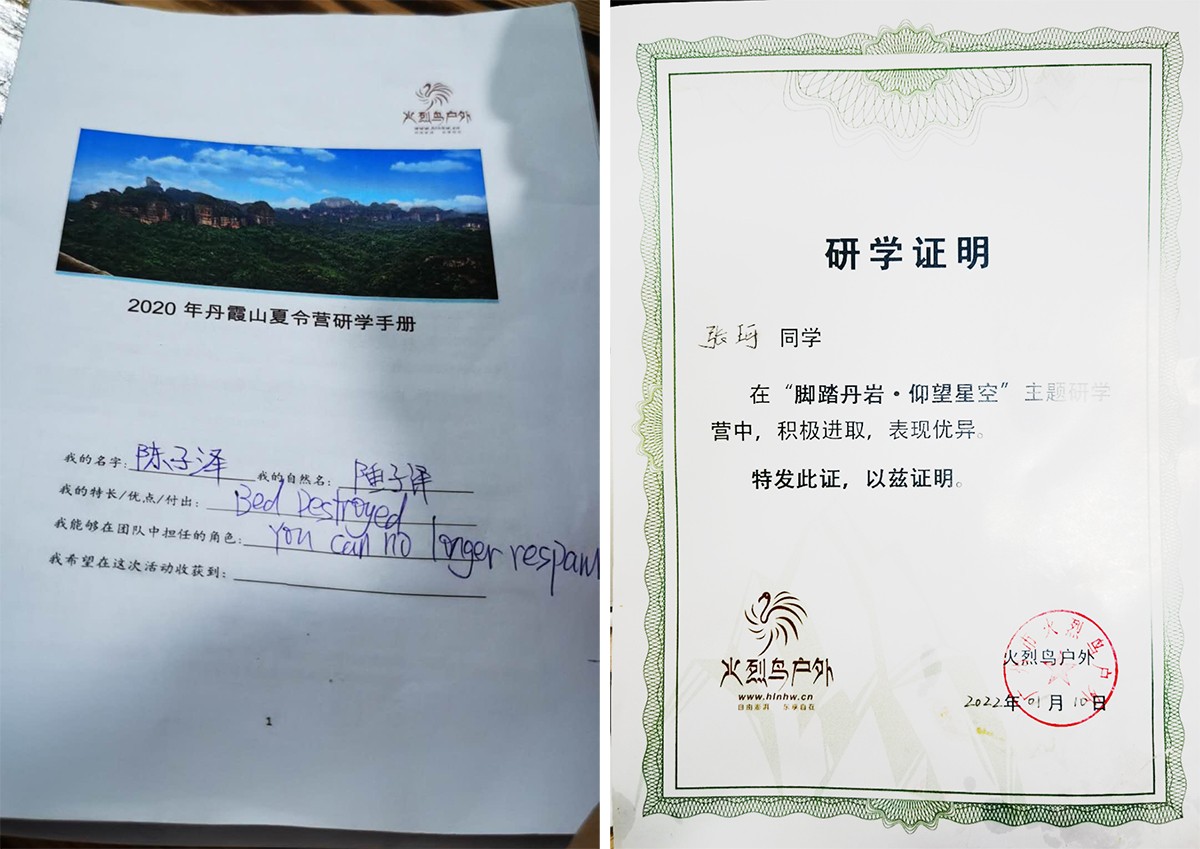 火烈鸟户外
www.hlnhw.cn
2020 年丹霞山夏令营研学手册
我的名字:陈子泽 我的自然名:陈子泽
我的特长/优点/付出:Bed Destroyed
我能够在团队中担任的角色:You can no longer respawn
我希望在这次活动收获到:
1
研学证明
张珂 同学
在“脚踏丹岩·仰望星空”主题研学
营中，积极进取，表现优异。
特发此证，以兹证明。
火烈鸟户外
www.hlnhw.cn
火烈鸟户外
2022年01月10日